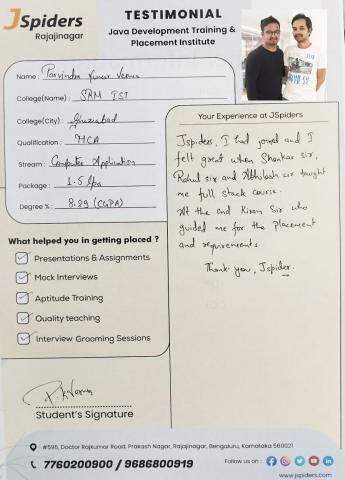 JSpiders
Rajajinagar
TESTIMONIAL
Java Development Training &
Placement Institute
Name : Parvindra Kumar Verma
College(Name) : SRM IST
College(City) : Ghaziabad
Qualification : MCA
Stream : Computer Application
Package : 1.5 lpa
Degree % : 8.29 (CGPA)
What helped you in getting placed ?
Presentations & Assignments
Mock Interviews
Aptitude Training
Quality teaching
Interview Grooming Sessions
Your Experience at JSpiders
Jspiders, I had joined and I
felt great when Shankar sir,
Rahul sir and Abhilash sir taught
me full stack course.
At the end Kiran Sir who
guided me for the placement
and requirements.
Thank you, Jspider.
P.K Verma
Student's Signature
#595, Doctor Rajkumar Road, Prakash Nagar, Rajajinagar, Bengaluru, Karnataka 560021
7760200900 / 9686800919
Follow us on :
www.jspiders.com